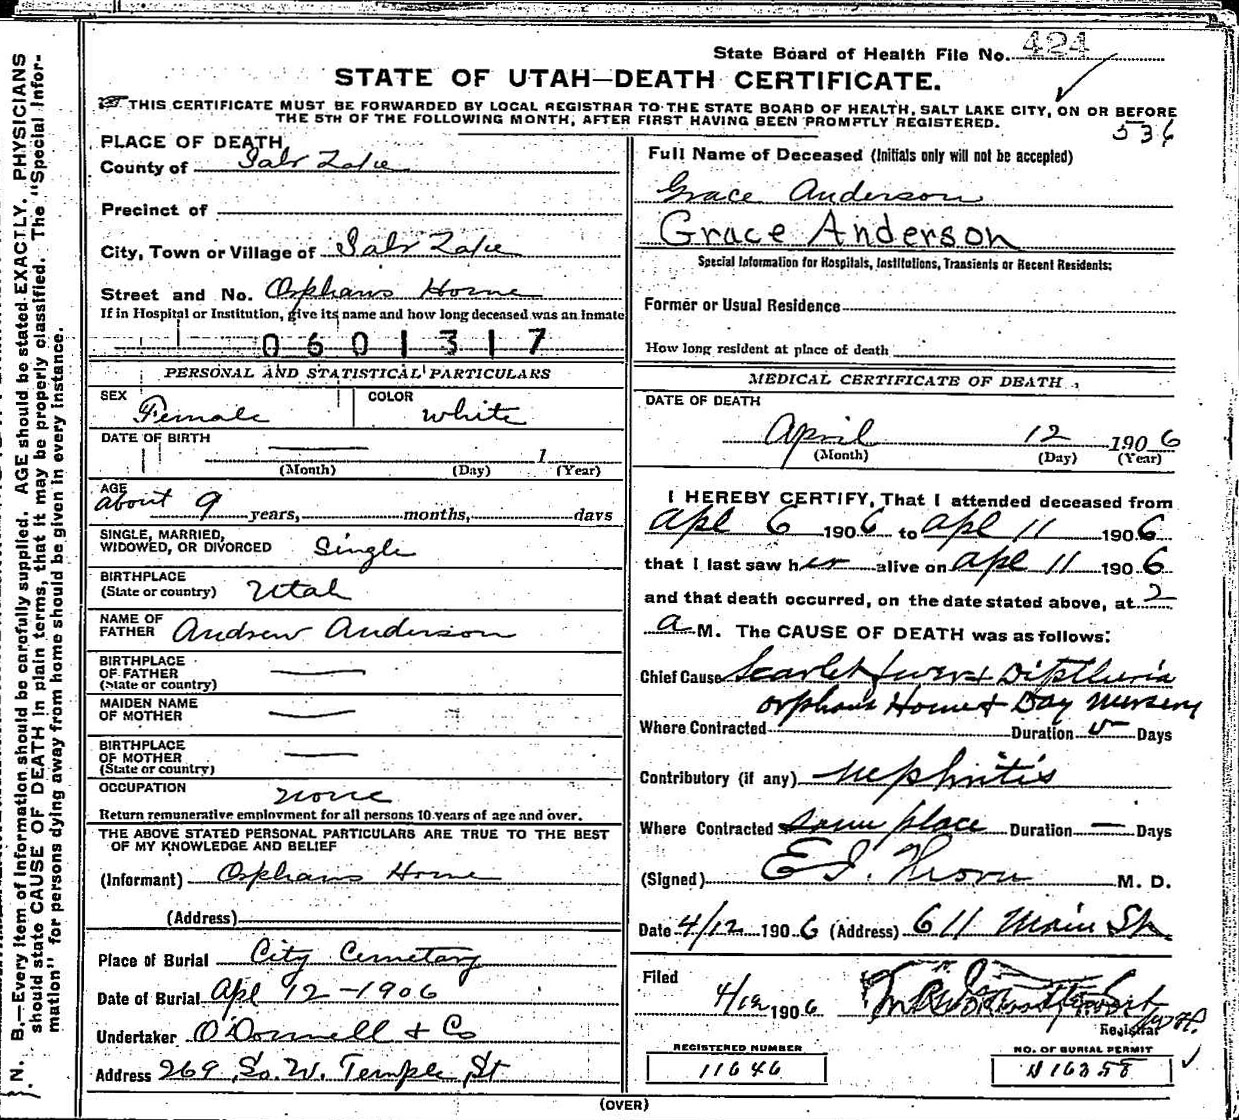 State Board of Health File No. 424
STATE OF UTAH—DEATH CERTIFICATE.
THIS CERTIFICATE MUST BE FORWARDED BY LOCAL REGISTRAR TO THE STATE BOARD OF HEALTH, SALT LAKE CITY, ON OR BEFORE
THE 5TH OF THE FOLLOWING MONTH, AFTER FIRST HAVING BEEN PROMPTLY REGISTERED.
536
N. B.—Every item of information should be carefully supplied. AGE should be stated EXACTLY. PHYSICIANS
should state CAUSE OF DEATH in plain terms, that it may be properly classified. The "Special Infor-
mation" for persons dying away from home should be given in every instance.
PLACE OF DEATH
County of Salt Lake
Precinct of
City, Town or Village of Salt Lake
Street and No. Orphans Home
If in Hospital or Institution, give its name and how long deceased was an inmate
0601317
PERSONAL AND STATISTICAL PARTICULARS
SEX Female COLOR white
DATE OF BIRTH — 1
(Month) (Day) (Year)
AGE
about 9 years, months, days
SINGLE, MARRIED,
WIDOWED, OR DIVORCED Single
BIRTHPLACE
(State or country) Utah
NAME OF
FATHER Andrew Anderson
BIRTHPLACE
OF FATHER —
(State or country)
MAIDEN NAME
OF MOTHER —
BIRTHPLACE
OF MOTHER —
(State or country)
OCCUPATION none
Return remunerative employment for all persons 10 years of age and over.
THE ABOVE STATED PERSONAL PARTICULARS ARE TRUE TO THE BEST
OF MY KNOWLEDGE AND BELIEF
(Informant) Orphans Home
(Address)
Place of Burial City Cemetary
Date of Burial Apl 12-1906
Undertaker O'Donnell & Co
Address 269 So. W. Temple St
Full Name of Deceased (Initials only will not be accepted)
Grace Anderson
Grace Anderson
Special Information for Hospitals, Institutions, Transients or Recent Residents:
Former or Usual Residence
How long resident at place of death
MEDICAL CERTIFICATE OF DEATH
DATE OF DEATH
April 12 1906
(Month) (Day) (Year)
I HEREBY CERTIFY, That I attended deceased from
Apl 6 1906 to Apl 11 1906
that I last saw her alive on Apl 11 1906
and that death occurred, on the date stated above, at 2
a M. The CAUSE OF DEATH was as follows:
Chief Cause Scarlet fever + Diptheria
Orphans Home + Day Nursery
Where Contracted Duration 5 Days
Contributory (if any) nephritis
Where Contracted same place Duration — Days
(Signed) E. I. M. D.
Date 4/12 1906 (Address) 611 Main St
Filed
4/12 1906
Registrar
REGISTERED NUMBER
11646
NO. OF BURIAL PERMIT
16358
(OVER)